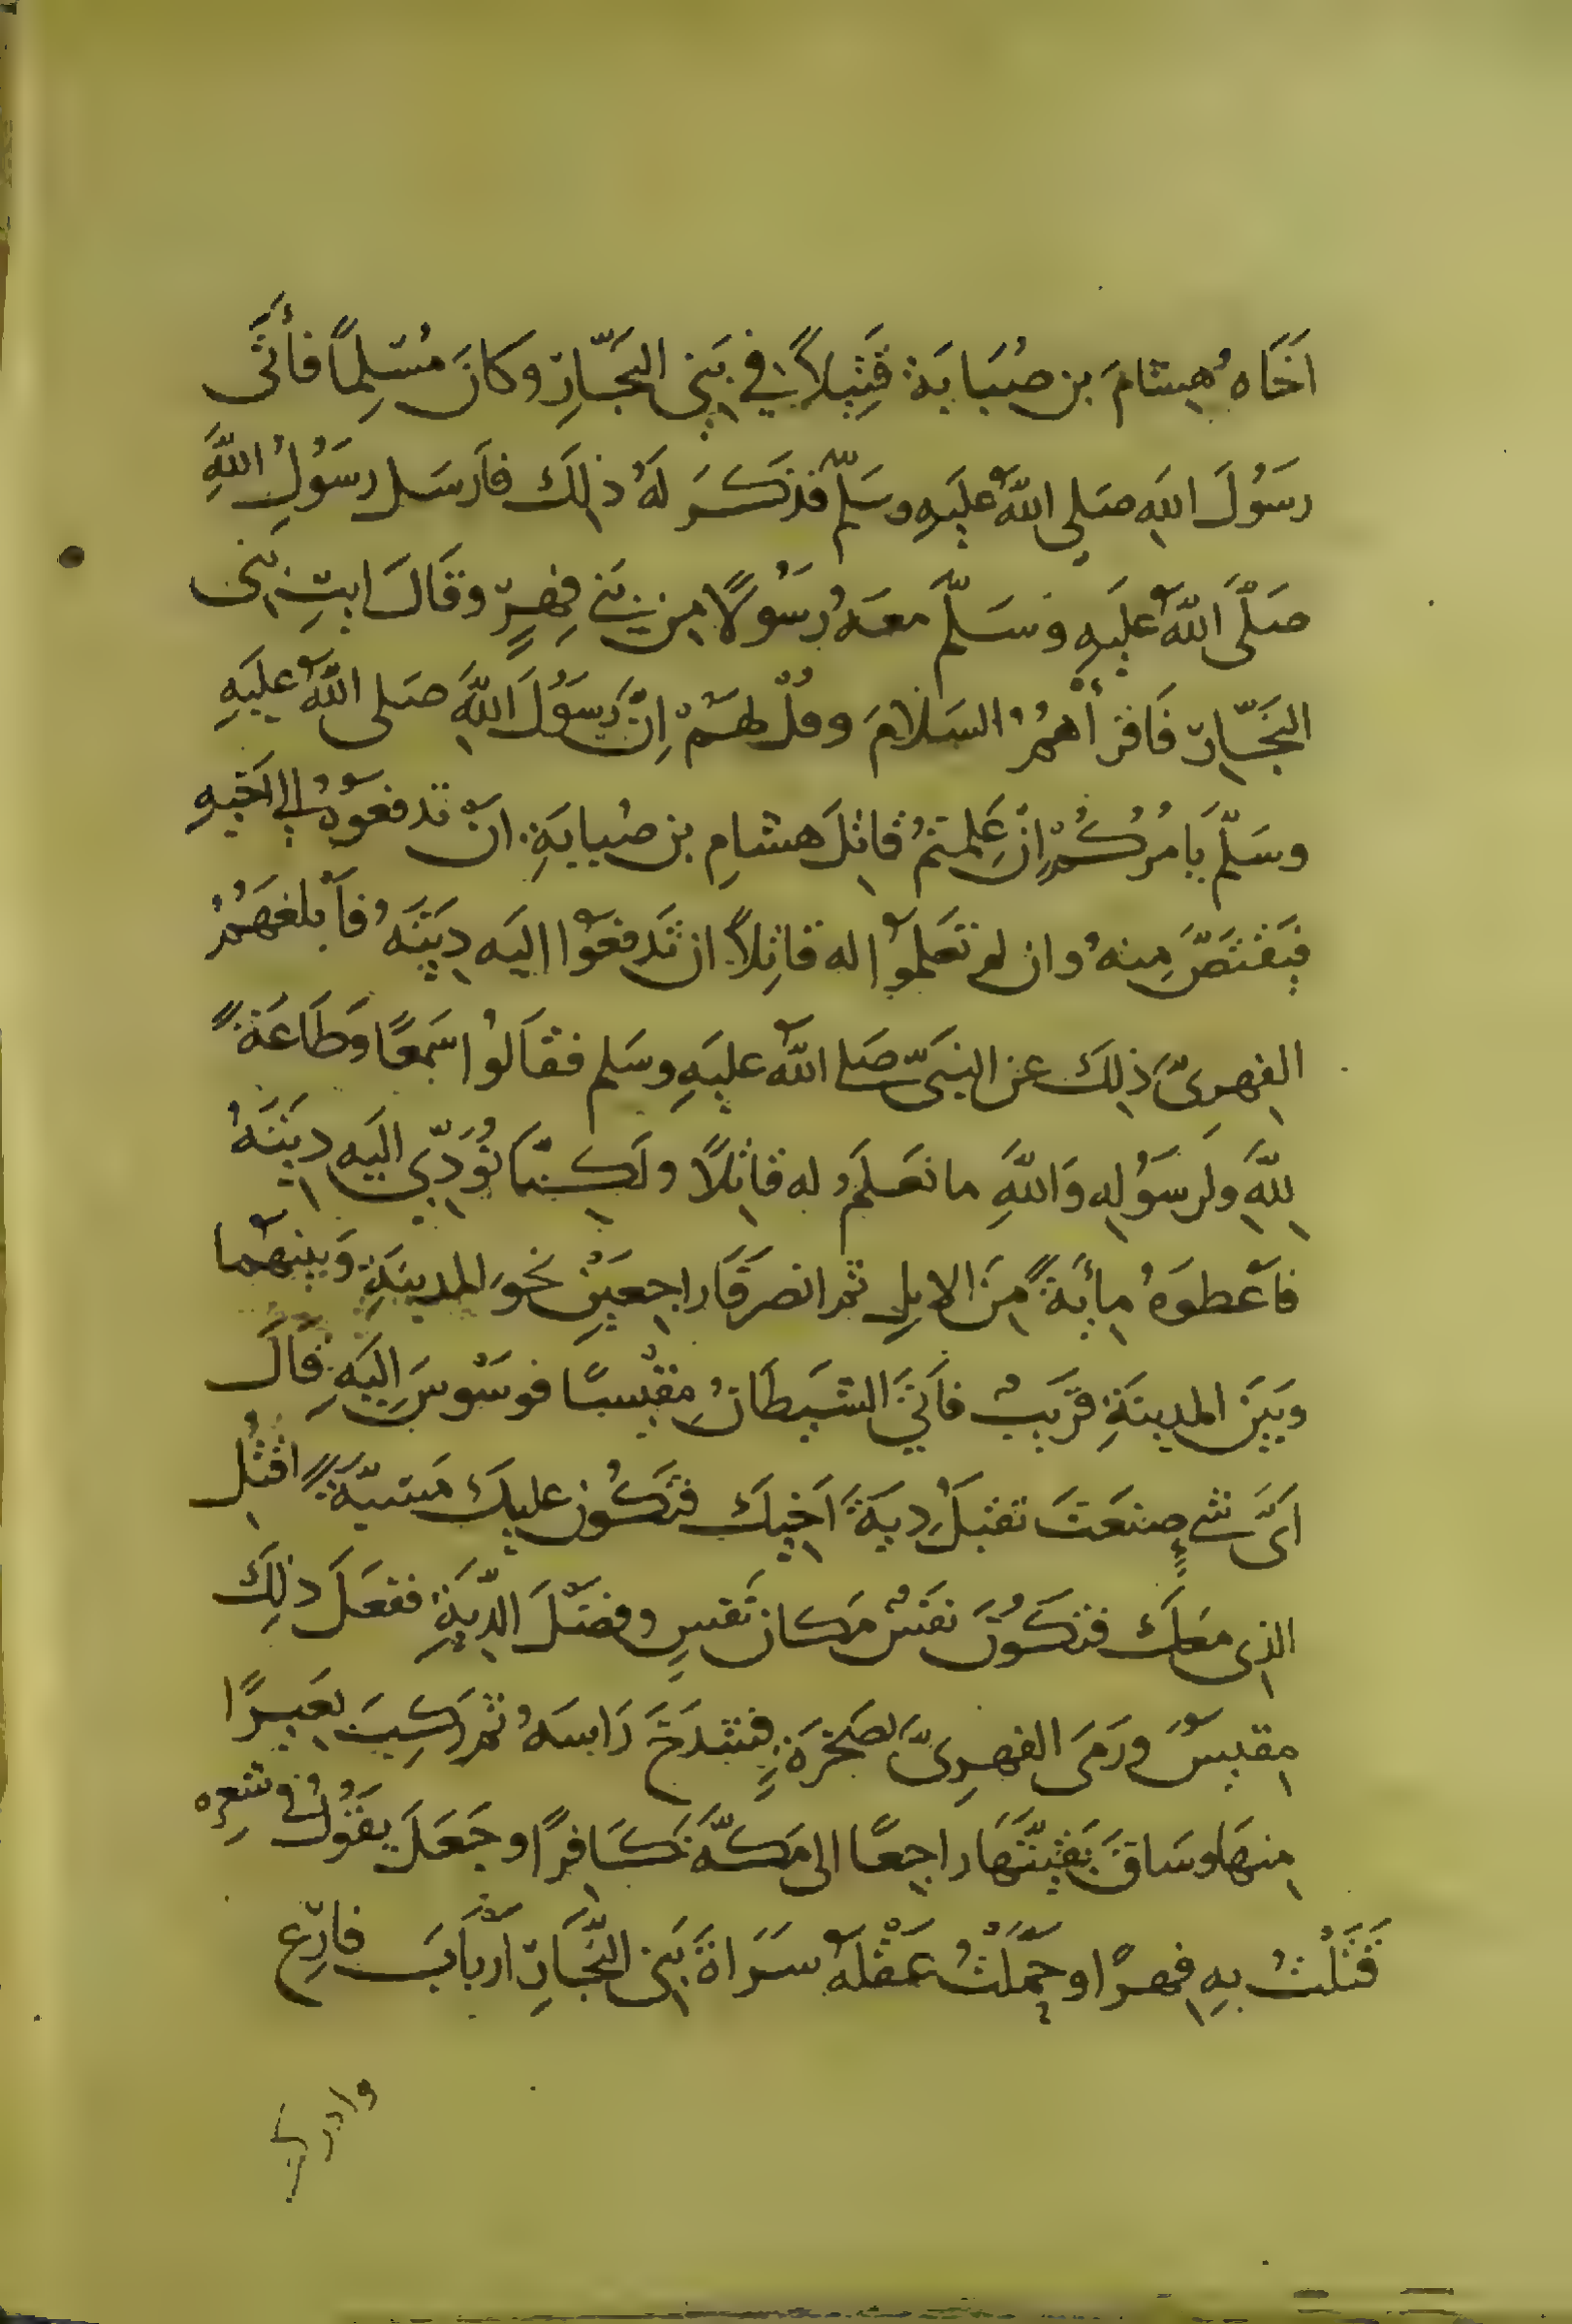 اَخَاهُ هِشَامَ بن صُبَابَةَ قَتِيلاً فِي بَنِي النَّجَّارِ وَكَانَ مُسْلِمًا فَأَتَى
رَسُولَ اللهِ صَلى اللهُ عليَهِ وسَلّم فذكَرَ لَهُ ذلِكَ فاَرسَل رسَوُلُ اللهِ
صَلَّى اللهُ عَليَهِ وَسَلّمَ مَعَهُ رَسُولًا مِن بَنِي فِهرٍ وَقَالَ ايتِ بَنِي
النَجَّارِ فَاقرأهُمُ السَلامَ وقُلْ لهَمُ اِنَّ رَسَوُلَ اللهِ صَلى اللهُ عليَهِ
وسَلّمَ يَامُرُكُمْ اِنْ عَلِمتمُ قَاتِلَ هشَامِ بن صُبابةِ انْ تدفعوُهُ الى اَخيهِ
فيَقْتَصَّ مِنهُ وان لم تعَلموُا له قاتِلاً ان تدَفعوُا اليَه دِيَتَهُ فاَبلغهَمُ
الفِهرِىّ ذلِكَ عَن النبَيّ صَلى اللهُ عليَهِ وسَلم فقاَلوُا سَمعًا وَطَاعَةً
لِلّهِ ولرسَوُلهِ وَاللهِ ما نعَلَمُ له قاتِلًا ولَكِنّا نُؤدِّي اليَهِ ديَتَهُ
فاَعْطوَهُ مِايَةً مِنَ الابِلِ ثم انصَرفَا راجِعَينِ نحوَ المدينَةِ وَبينهُما
وَبَينَ المدينَةِ قَريَبٌ فاَتَى الشيَطَانُ مِقْيسًا فوسَوْسَ اِليَهِ فَقَالَ
اَىَّ شَيءٍ صَنعَتَ تقبَلُ دِيَةَ اَخِيكَ فتَكَوُن عليكَ مَسَبّةً اقْتُلِ
الذِى مَعَكَ فتكَوُنَ نفَسٌ مَكان نَفسٍ وفضَلَ الدِّيَةِ ففعَلَ ذلِكَ
مِقيسٌ ورَمَى الفهِرِىَّ بصَخْرَةٍ فشَدَخَ رَاسَهُ ثمَ ركِبَ بعَيرًا
مِنهَا وسَاقَ بَقيّتَهَا راجِعًا الى مَكّةَ كَافِرًا وجَعَلَ يقوُلُ فى شعرِه
قَتَلْتُ بهِ فِهرًا وحَمّلْتُ عَقْلَهُ سَرَاةَ بَنى النَّجَّارِ اَرْبابَ فارِعِ
وادركت